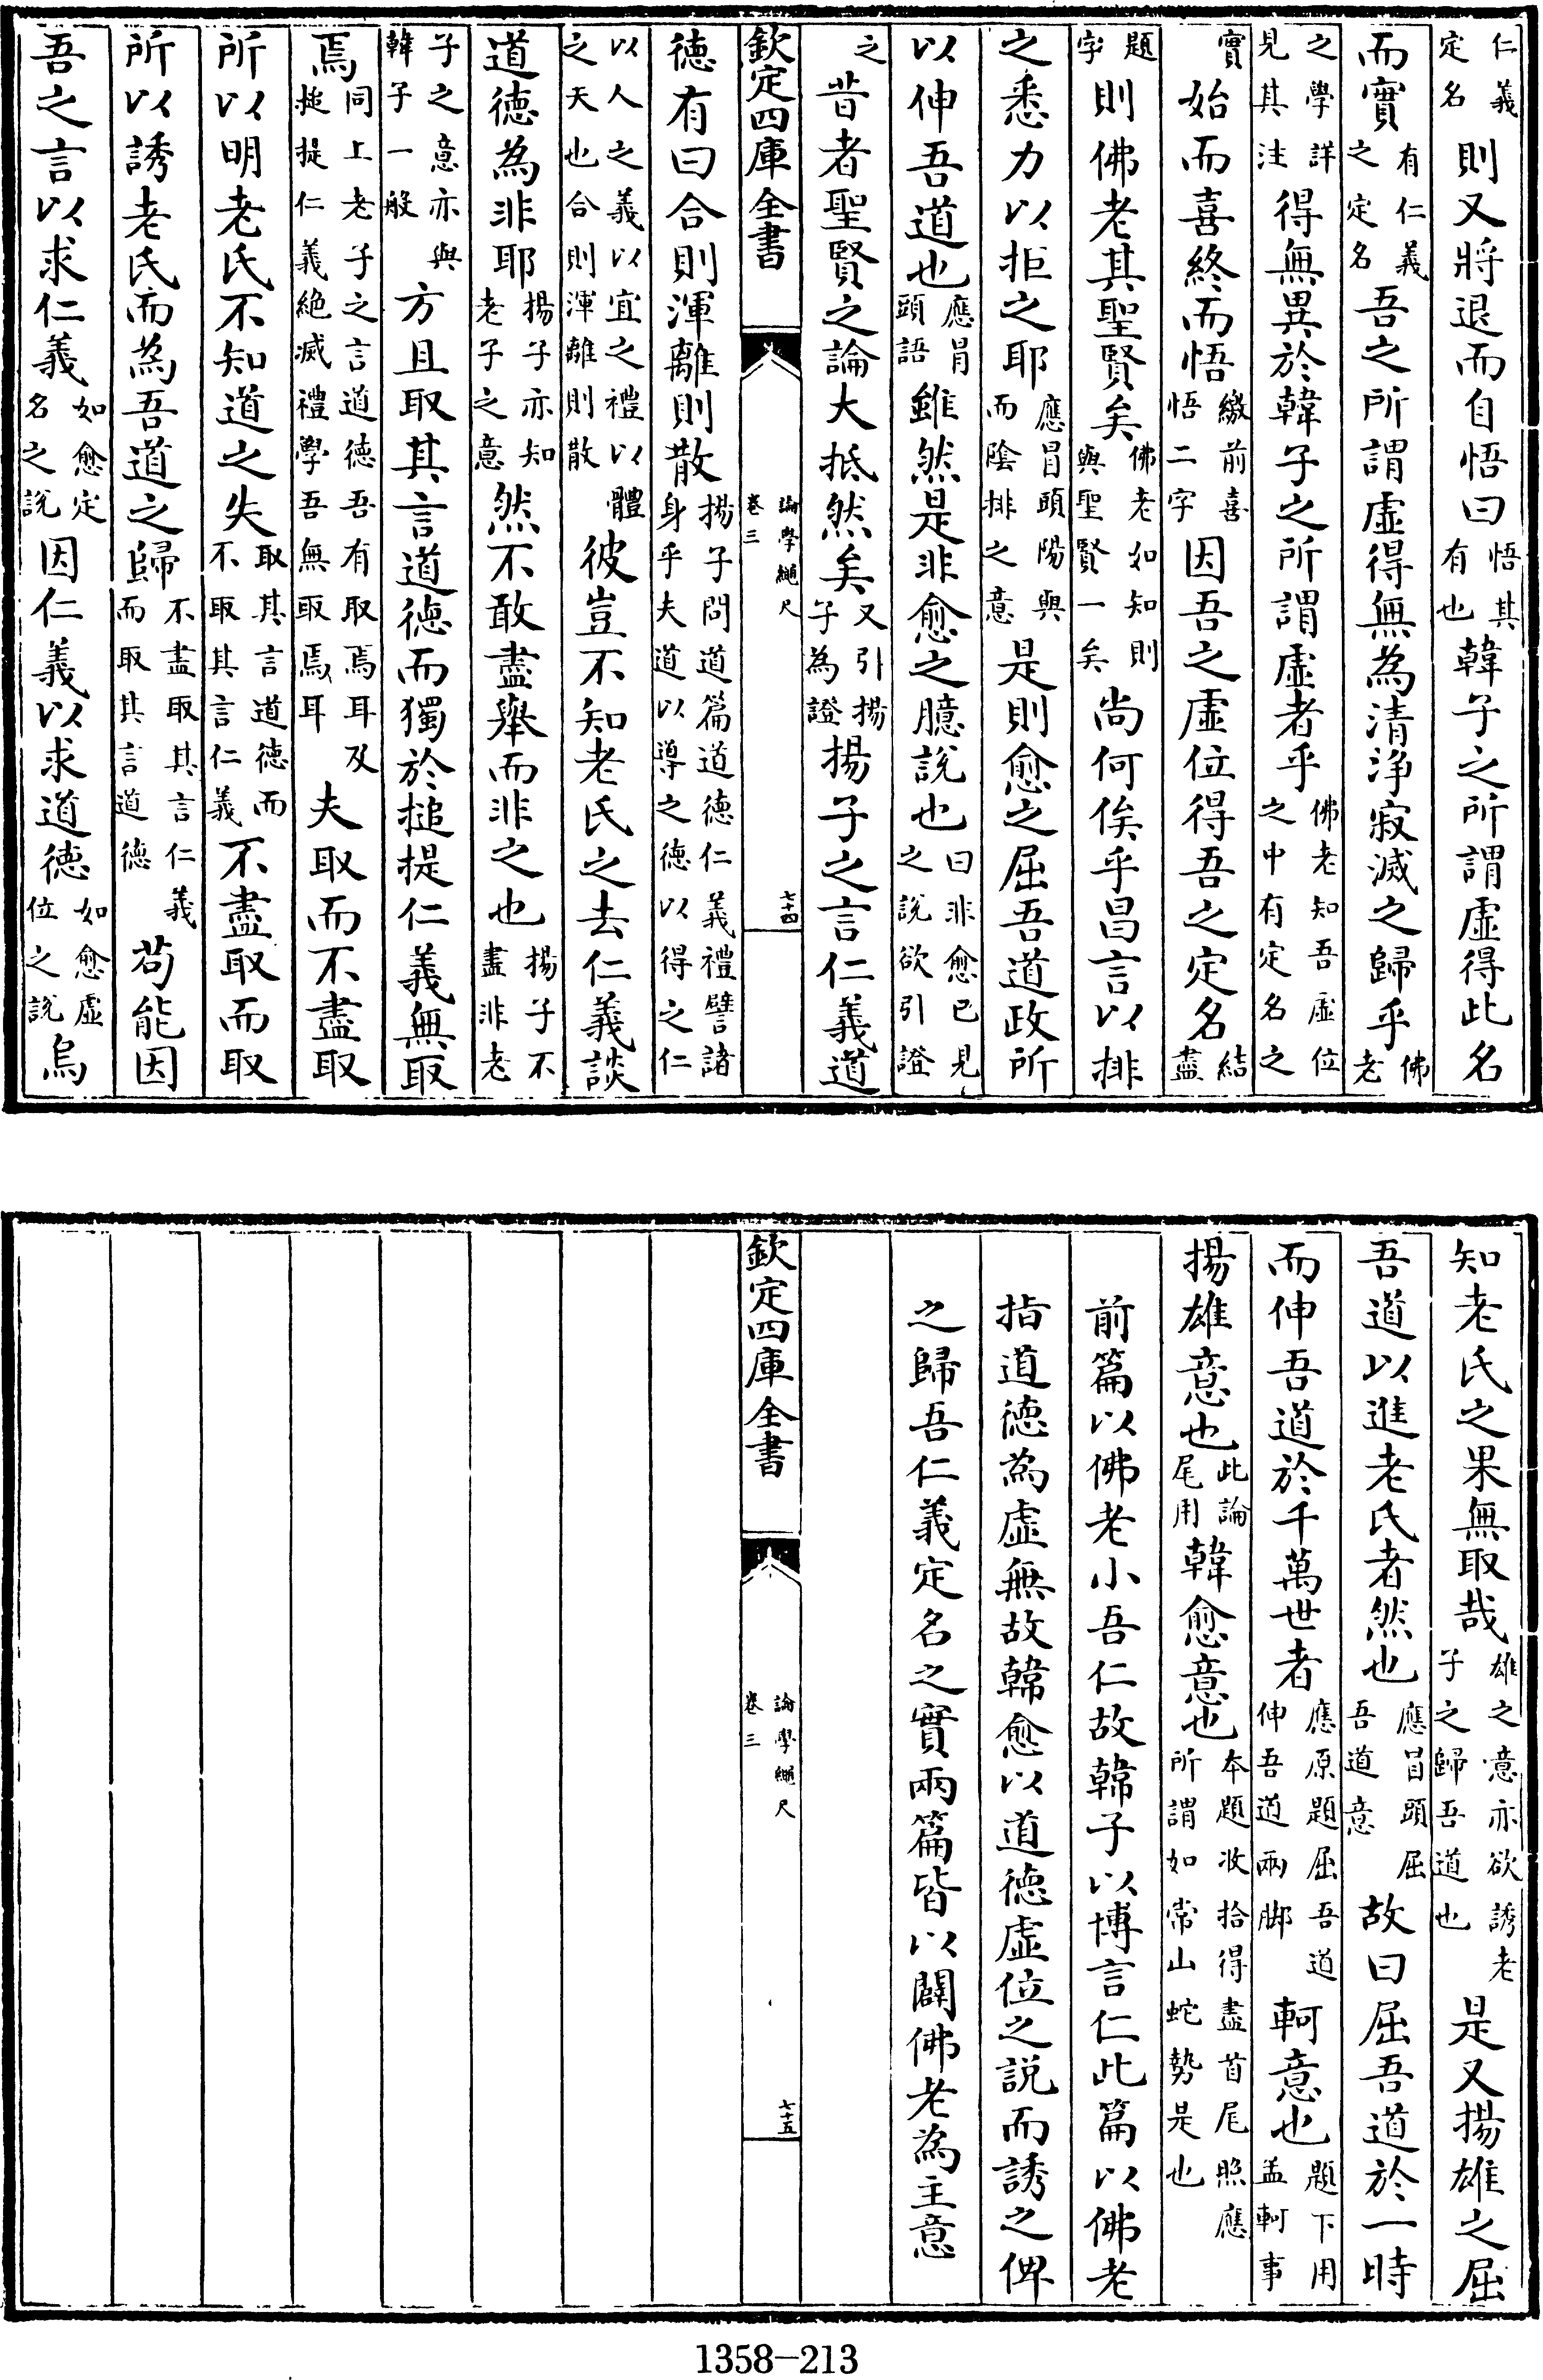 仁義定名則又將退而自悟曰悟其有也韓子之所謂虛得此名
而實有仁義之定名吾之所謂虛得無為清浄寂滅之歸乎佛老
之學詳見其注得無異於韓子之所謂虛者乎佛老知吾虛位之中有定名之
實始而喜終而悟繳前喜悟二字因吾之虛位得吾之定名結盡
題字則佛老其聖賢矣佛老如知則與聖賢一矣尚何俟乎昌言以排
之悉力以拒之耶應冒頭陽與而陰排之意是則愈之屈吾道政所
以伸吾道也應冒頭語雖然是非愈之臆說也曰非愈已見之說欲引證
之昔者聖賢之論大抵然矣又引揚子為證揚子之言仁義道
欽定四庫全書
論學繩尺
卷三
七十四
德有曰合則渾離則散揚子問道篇道德仁義禮譬諸身乎夫道以導之德以得之仁
以人之義以宜之禮以體之天也合則渾離則散彼豈不知老氏之去仁義談
道德為非耶揚子亦知老子之意然不敢盡舉而非之也揚子不盡非老
子之意亦與韓子一般方且取其言道德而獨於搥提仁義無取
焉同上老子之言道德吾有取焉耳及搥提仁義絶滅禮學吾無取焉耳夫取而不盡取
所以明老氏不知道之失取其言道德而不取其言仁義不盡取而取
所以誘老氏而為吾道之歸不盡取其言仁義而取其言道德苟能因
吾之言以求仁義如愈定名之說因仁義以求道德如愈虛位之說烏
知老氏之果無取哉雄之意亦欲誘老子之歸吾道也是又揚雄之屈
吾道以進老氏者然也應冒頭屈吾道意故曰屈吾道於一時
而伸吾道於千萬世者應原題屈吾道伸吾道兩脚軻意也題下用孟軻事
揚雄意也此論尾用韓愈意也本題收拾得盡首尾照應所謂如常山蛇勢是也
前篇以佛老小吾仁故韓子以博言仁此篇以佛老
指道德為虛無故韓愈以道德虛位之說而誘之俾
之歸吾仁義定名之實兩篇皆以闢佛老為主意
欽定四庫全書
論學繩尺
卷三
七十五
1358-213